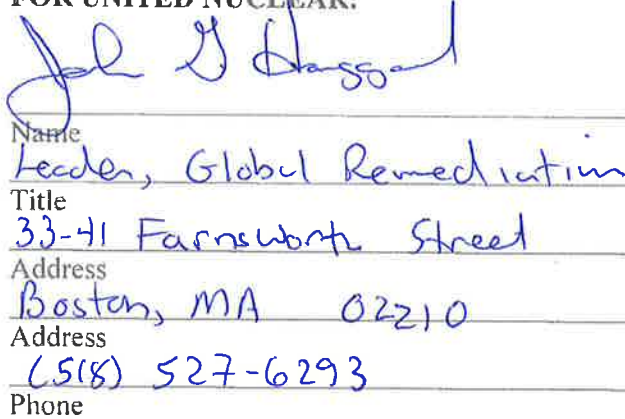 FOR UNITED NUCLEAR:
John G Haggard
Name
Leader, Global Remediation
Title
33-41 Farnsworth Street
Address
Boston, MA 02210
Address
(518) 527-6293
Phone